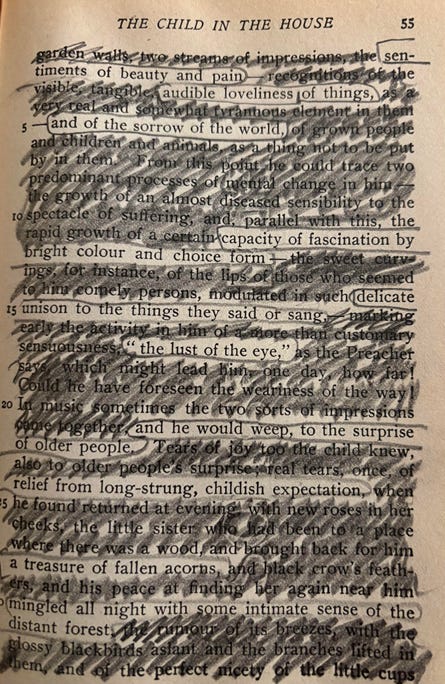 THE CHILD IN THE HOUSE 55
garden walls, two streams of impressions, the sen-
timents of beauty and pain—recognitions of the
visible, tangible, audible loveliness of things, as a
very real and somewhat tyrannous element in them
5 —and of the sorrow of the world, of grown people
and children and animals, as a thing not to be put
by in them. From this point he could trace two
predominant processes of mental change in him—
the growth of an almost diseased sensibility to the
10 spectacle of suffering, and, parallel with this, the
rapid growth of a certain capacity of fascination by
bright colour and choice form—the sweet curv-
ings, for instance, of the lips of those who seemed
to him comely persons, modulated in such delicate
15 unison to the things they said or sang,—marking
early the activity in him of a more than customary
sensuousness, "the lust of the eye," as the Preacher
says, which might lead him, one day, how far!
Could he have foreseen the weariness of the way!
20 In music sometimes the two sorts of impressions
came together, and he would weep, to the surprise
of older people. Tears of joy too the child knew,
also to older people's surprise; real tears, once, of
relief from long-strung, childish expectation, when
25 he found returned at evening, with new roses in her
cheeks, the little sister who had been to a place
where there was a wood, and brought back for him
a treasure of fallen acorns, and black crow's feath-
ers, and his peace at finding her again near him
mingled all night with some intimate sense of the
distant forest, the rumour of its breezes, with the
glossy blackbirds aslant and the branches lifted in
them, and of the perfect nicety of the little cups